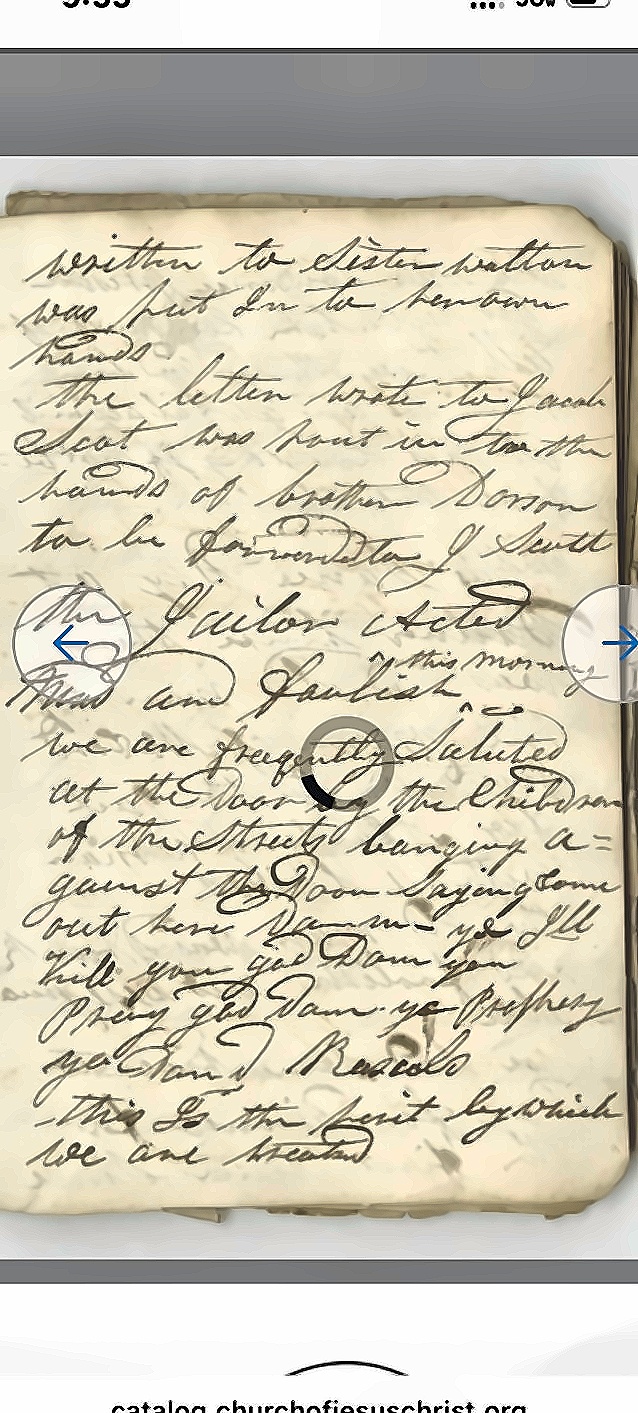 written to Sister walton
was put In to her own
hands
the letter wrote to Jacob
Scot was pout in to the
hands of brother
to be forwerded to J Scott
the Jailor Acted
and foulish ^this morning
we are freqently Saluted
at the Door by the Children
of the Streets banging a=
gainst the Door Saying Come
out here Damm ye I'll
Kill you god Dam you
Prey god Dam ye Prophesy
ye Damd Rascols
this Is the by which
we are treated
catalog.churchofjesuschrist.org